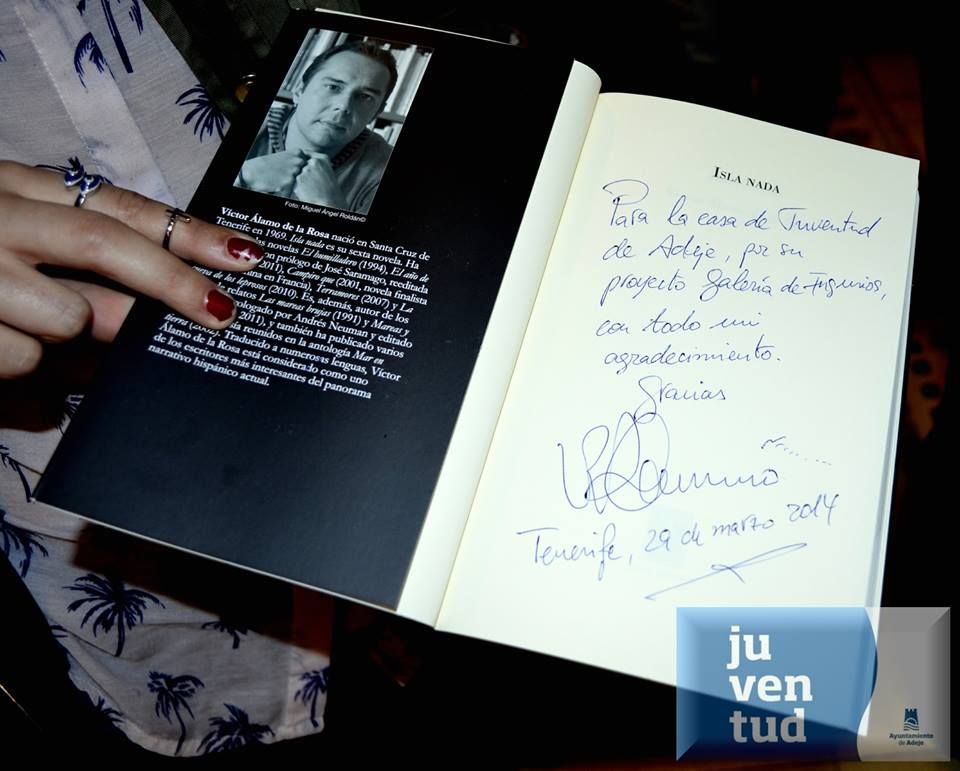 Foto: Miguel Ángel Roldán©
Víctor Álamo de la Rosa nació en Santa Cruz de
Tenerife en 1969. Isla nada es su sexta novela. Ha
las novelas El humilladero (1994), El año de
on prólogo de José Saramago, reeditada
2011), Campiro que (2001, novela finalista
ina en Francia), Terramores (2007) y La
cueva de los leprosos (2010). Es, además, autor de los
de relatos Las mareas brujas (1991) y Mareas y
prologado por Andrés Neuman y editado
2011), y también ha publicado varios
sía reunidos en la antología Mar en
tierra (2002). Traducido a numerosas lenguas, Víctor
Álamo de la Rosa está considerado como uno
de los escritores más interesantes del panorama
narrativo hispánico actual.
ISLA NADA
Para la casa de Juventud
de Adeje, por su
proyecto Galería de Ingenios,
con todo mi
agradecimiento.
Gracias
Tenerife, 29 de marzo 2014
ju
ven
tud
Ayuntamiento
de Adeje